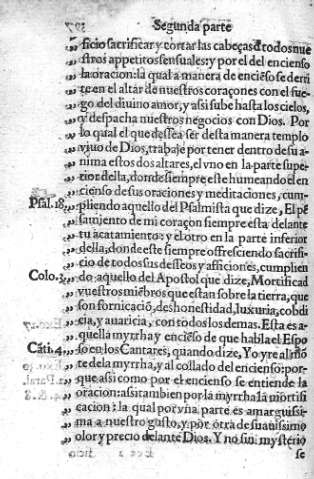 Segunda parte
„ ficio sacrificar y cortar las cabeças d̄ todos nue
„ stros appetitos sensuales: y por el del encienso
„ la oracion: la qual a manera de enciẽso se derri
„ te en el altar de nuestros coraçones con el fue-
„ go del diuino amor, y assi sube hasta los cielos,
„ y despacha nuestros negocios con Dios. Por
„ lo qual el que dessea ser desta manera templo
„ viuo de Dios, trabaje por tener dentro de su a-
„ nima estos dos altares, el vno en la parte supe-
„ rior della, donde siempre este humeando el en
„ cienso de sus oraciones y meditaciones, cum-
Psal. 18. „ pliendo aquello del Psalmista que dize, El pẽ
„ samiento de mi coraçon siempre esta delante
„ tu acatamiento: y el otro en la parte inferior
„ della, donde este siempre offresciendo sacrifi-
„ cio de todos sus desseos y afficiones, cumplien
Colo. 3. „ do aquello del Apostol que dize, Mortificad
„ vuestros miẽbros que estan sobre la tierra, que
„ son fornicaciõ, deshonestidad, luxuria, cobdi
„ cia, y auaricia, con todos los demas. Esta es a-
„ quella myrrha y enciẽso de que habla el Espo
Cãti. 4. „ so en los Cantares, quando dize, Yo yre al mõ
„ te de la myrrha, y al collado del encienso: por-
„ que assi como por el encienso se entiende la
„ oracion: assi tambien por la myrrha la mortifi
„ cacion: la qual por vna parte es amarguissi-
„ ma a nuestro gusto, y por otra de suauissimo
„ olor y precio delante Dios. Y no sin mysterio
se